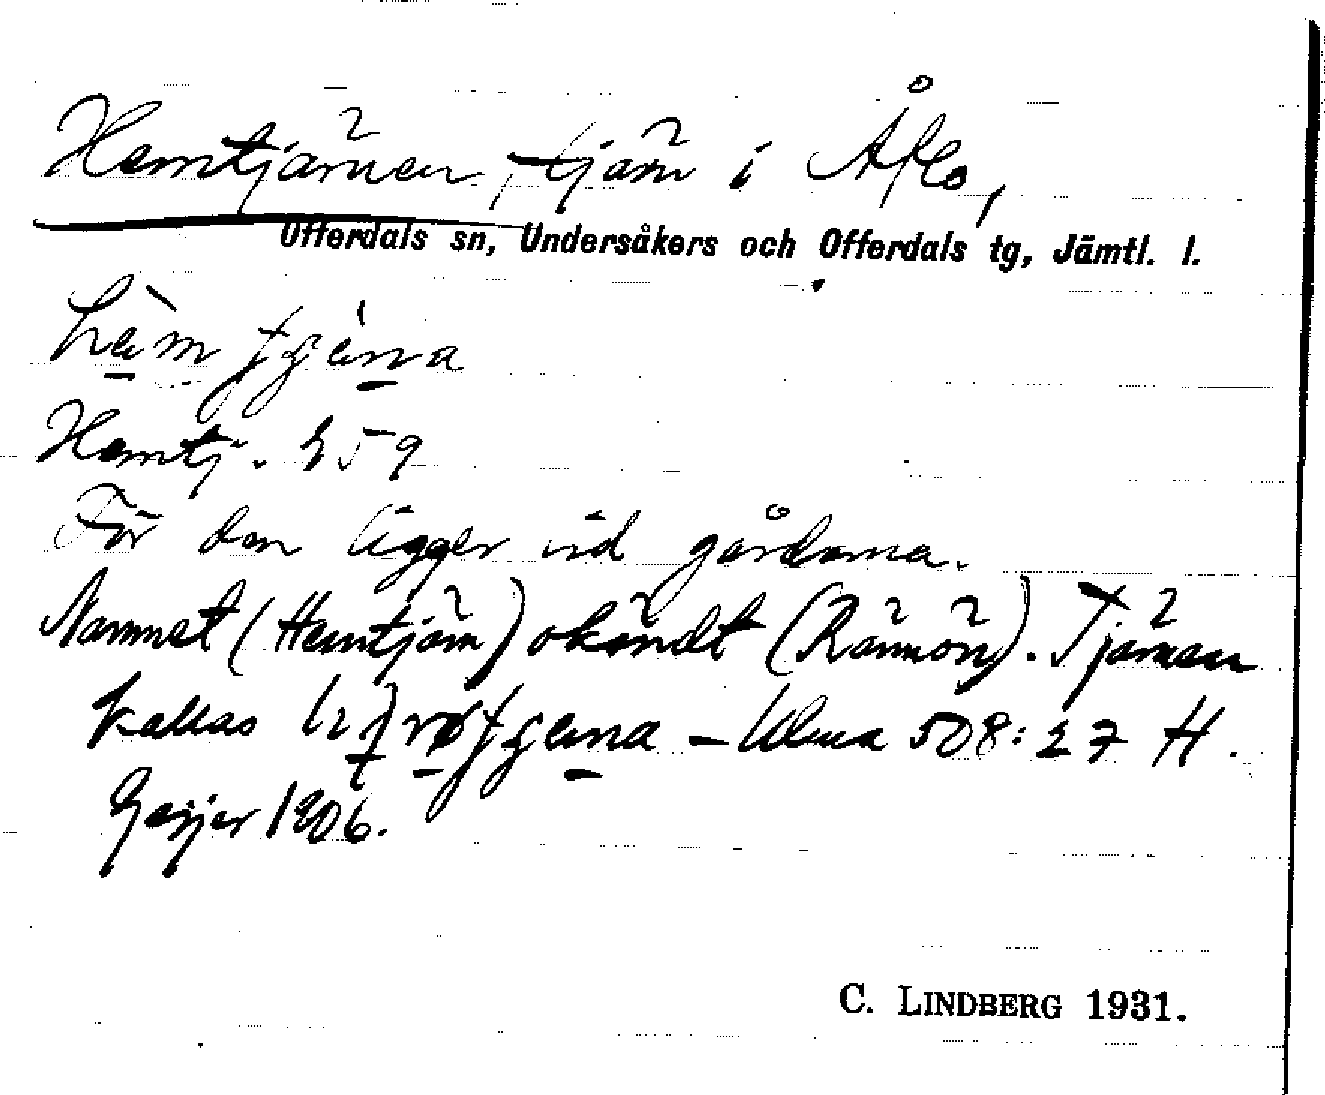 Hemtjärnen, tjärn i Åflo,
Offerdals sn, Undersåkers och Offerdals tg, Jämtl. l.
Hemtj. 259
För den ligger vid gårdarna.
Namnet (Hemtjärn) okändt (Rännön). Tjärnen
kallas – Ulma 508:27 H.
Geijer 1906.
C. LINDBERG 1931.